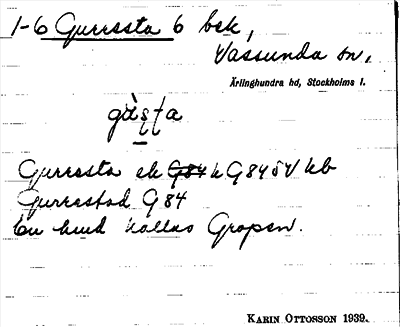 1-6 Gurresta 6 bsk,
Vassunda sn.
Ärlinghundra hd, Stockholms l.
gàsta
Gurresta ek G84 h G8454 kb
Gurrestad G 84
En hmd kallas Gropen.
KARIN OTTOSSON 1939.